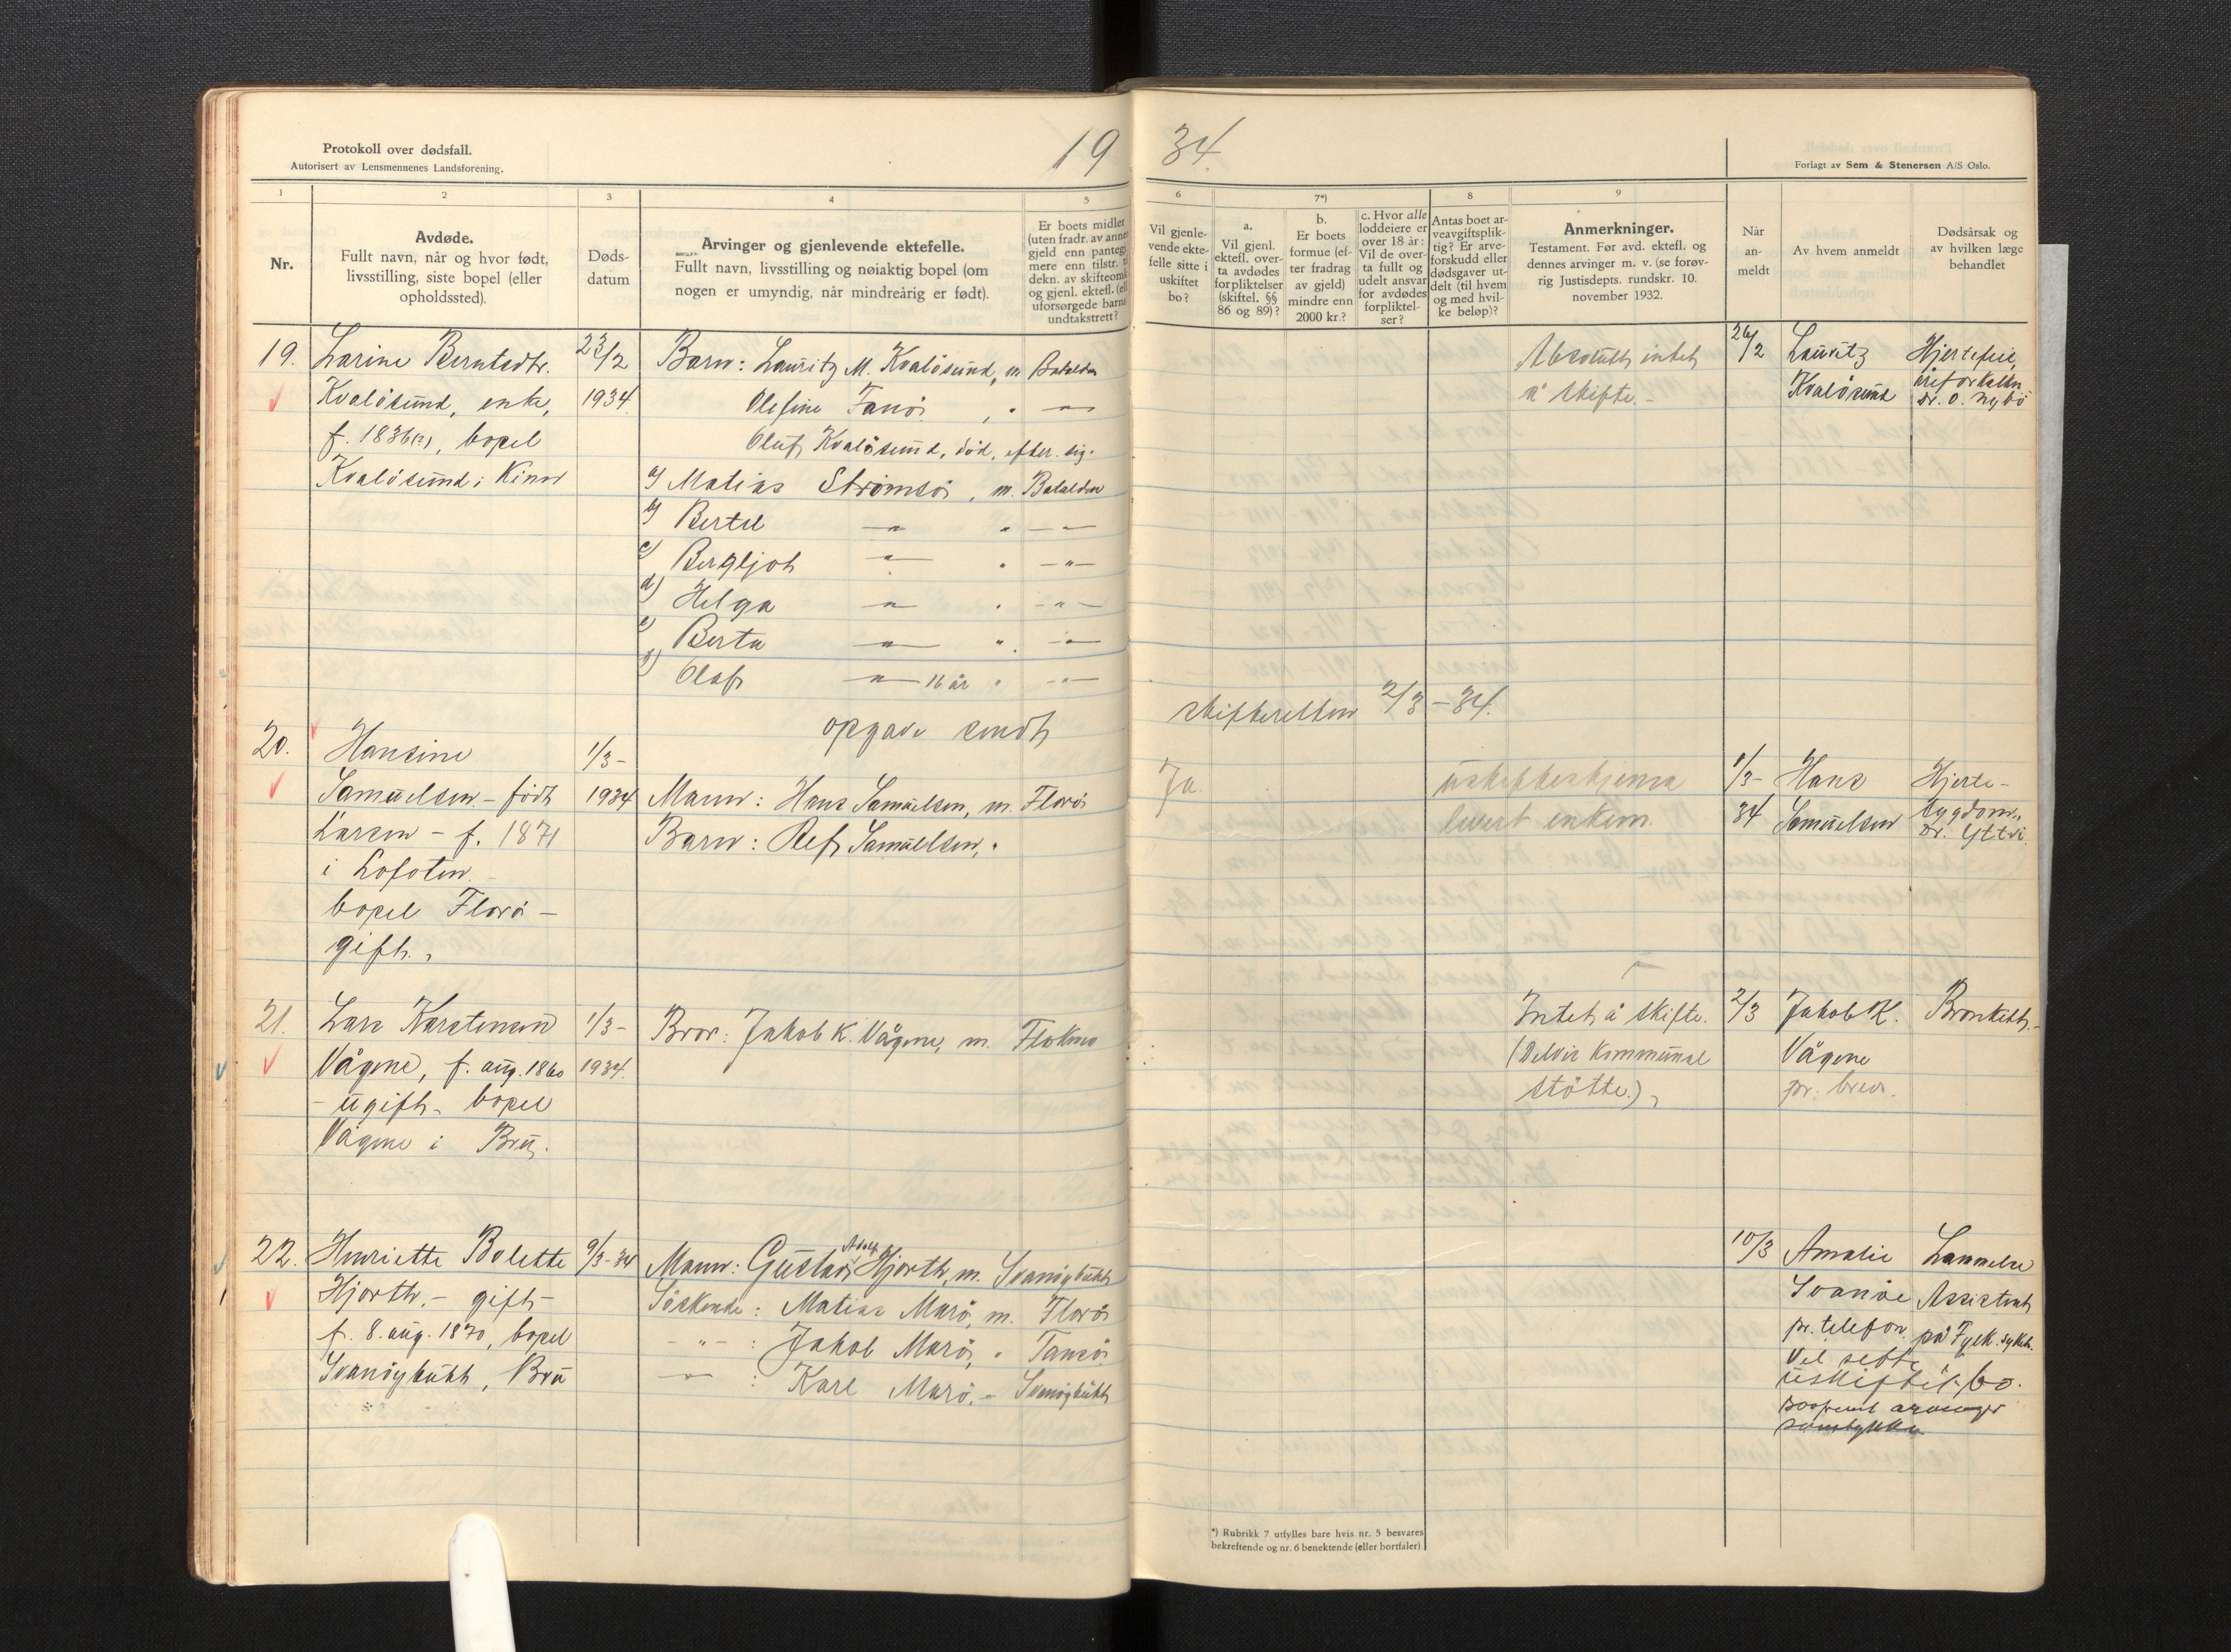 Protokoll over dødsfall.
Autorisert av Lensmennenes Landsforening.
19 34
Forlagt av Sem & Stenersen A/S Oslo.
1 2 3 4 5 6 7*) 8 9
Nr.
Avdøde.
Fullt navn, når og hvor født,
livsstilling, siste bopel (eller
opholdssted).
Døds-
datum
Arvinger og gjenlevende ektefelle.
Fullt navn, livsstilling og nøiaktig bopel (om
nogen er umyndig, når mindreårig er født).
Er boets midler
(uten fradr. av annen
gjeld enn pantegj.
mere enn tilstr. t
dekn. av skifteomk
og gjenl. ektefl. (el
uforsørgede barns
undtakstrett?
Vil gjenle-
vende ekte-
felle sitte i
uskiftet
bo?
a.
Vil gjenl.
ektefl. over-
ta avdødes
forpliktelser
(skiftel. §§
86 og 89)?
b.
Er boets
formue (ef-
ter fradrag
av gjeld)
mindre enn
2000 kr.?
c. Hvor alle
loddeiere er
over 18 år:
Vil de over-
ta fullt og
udelt ansvar
for avdødes
forpliktel-
ser?
Antas boet ar-
veavgiftsplik-
tig? Er arve-
forskudd eller
dødsgaver ut-
delt (til hvem
og med hvil-
ke beløp)?
Anmerkninger.
Testament. Før avd. ektefl. og
dennes arvinger m. v. (se forøv-
rig Justisdepts. rundskr. 10.
november 1932.
Når
an-
meldt
Av hvem anmeldt
Dødsårsak og
av hvilken læge
behandlet
19.
Larine Berntsdtr.
Kvalösund, enke,
f. 1836(?), bopel
Kvalösund i Kinn
23/2
1934.
Barn: Lauritz M. Kvalösund, m Batalden
Olefine Fanöi, " — " —
Oluf Kvalösund, död, efter. sig.
a) Matias Strömsöi, m. Batalden
b) Bertel — " — " — " —
c) Bergljot — " — " — " —
d) Helga — " — " — " —
e) Berta — " — " — " —
f) Olaf — " — 16 år " — " —
Absolutt intet
å skifte. —
26/2
Lauritz
Kvalösund
Hjertefeil,
åreforkalkn.
dr. O. Nybö
opgave sendt skifteretten 2/3 – 34.
20.
Hansine
Samuelsen – född
Larsen – f. 1871
i Lofoten.
bopel Florö –
gift. ,
1/3 –
1934
Mann: Hans Samuelsen, m. Florö
Barn: Alf Samuelsen, "
Ja.
uskifteskjema
levert enkem.
1/3 –
34
Hans
Samuelsen
Hjerte-
sygdom.
Dr. Yttri.
21.
Lars Karstensen
Vågene, f. aug. 1860
– ugift – bopel
Vågene i Bru.
1/3 –
1934.
Bror: Jakob K. Vågene, m. Flokenes
Intet å skifte.
(Delvis kommunal
støtte.) ,
2/3
Jakob K.
Vågene
pr. brev.
Bronkitt. –
22.
Henriette Bolette
Hjorth. – gift –
f. 8. aug. 1870, bopel
Svanöybukt, Bru
9/3 – 34
Mann: Gustav Adolf Hjorth, m. Svanöybukt
Söskende: Matias Marö, m. Florö
– " – : Jakob Marö, " Tansöi
– " – : Karl Marö. – Svanöybukt
10/3
Amalie
Svanöe
pr. telefon.
Lammelse
Assistent
på Fylk. sykeh.
Vil sitte i
uskiftet bo.
samtykke
*) Rubrikk 7 utfylles bare hvis nr. 5 besvares
bekreftende og nr. 6 benektende (eller bortfaler)